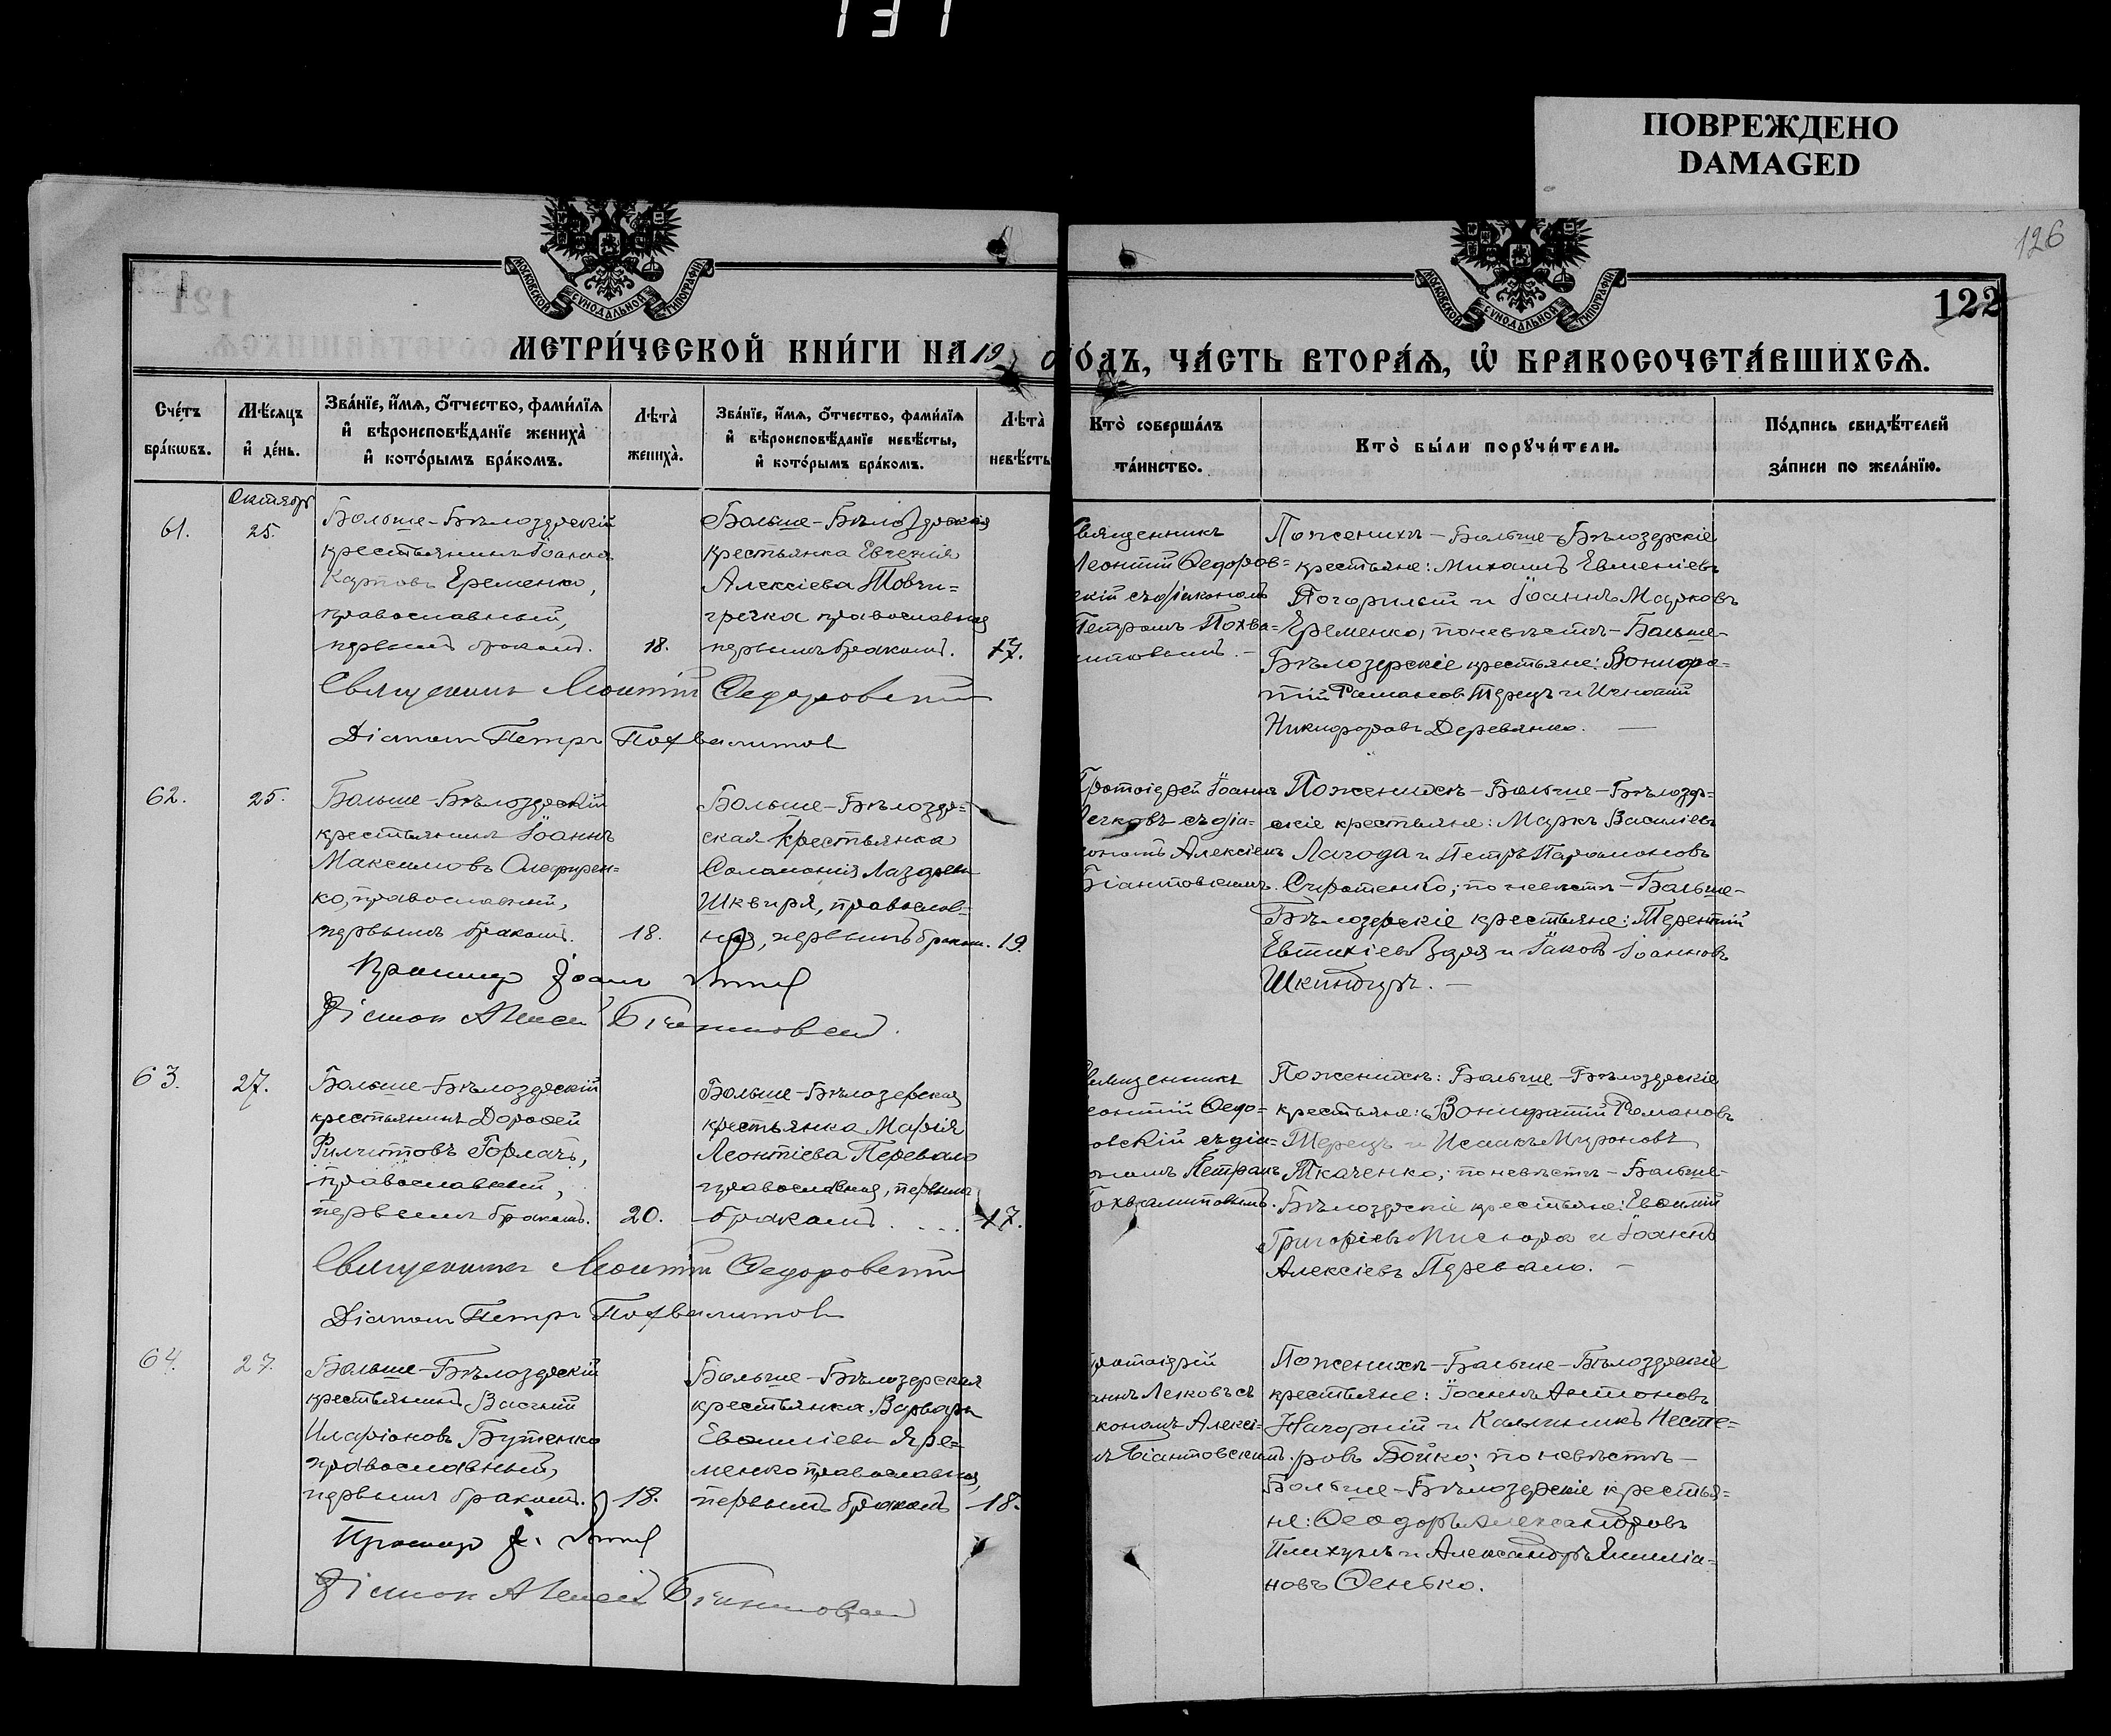 131
ПОВРЕЖДЕНО
DAMAGED
126
122
МОСКОВСКОЙ СѴНОДАЛЬНОЙ ТИПОГРАФІИ
МОСКОВСКОЙ СѴНОДАЛЬНОЙ ТИПОГРАФІИ
МЕТРИ́ЧЕСКОЙ КНИ́ГИ НА 19 О́ДЪ, ЧА́СТЬ ВТОРА́Ѧ, Ѽ БРАКОСОЧЕТА́ВШИХСѦ.
Сче́тъ бра́кѡвъ.
Мѣ́сѧцъ и҆ де́нь.
Зва́нїе, и҆́мѧ, ѻ҆́тчество, фами́лїѧ и҆ вѣроисповѣ́данїе жениха̀ и҆ кото́рымъ бра́комъ.
Лѣ́та̀ жениха̀.
Зва́нїе, и҆́мѧ, ѻ҆́тчество, фами́лїѧ и҆ вѣроисповѣ́данїе невѣ́сты, и҆ кото́рымъ бра́комъ.
Лѣ́та̀ невѣ́сты
Кто̀ соверша́лъ та́инство.
Кто̀ бы́ли порꙋчи́тели.
По́дпись свидѣ́телей за́писи по жела́нїю.
Октябрь
61.
25.
Больше-Бѣлозерскій
крестьянинъ Іоаннъ
Карповъ Еременко,
православный,
первымъ бракомъ.
18.
Больше-Бѣлозерская
крестьянка Евгенія
Алексіева Товчи=
гречка православная
первымъ бракомъ.
17.
Священникъ
Леонтій Ѳедоров=
скій съ діакономъ
Петромъ Похва=
литовымъ.
По женихѣ - Больше-Бѣлозерскіе
крестьяне: Михаилъ Евменіевъ
Погорилый и Іоаннъ Марковъ
Еременко, по невѣстѣ - Больше-
Бѣлозерскіе крестьяне: Вонифа=
тій Романовъ Терецъ и Игнатій
Никифоровъ Деревянко.
Священникъ Леонтій Ѳедоровскій
Діаконъ Петръ Похвалитовъ
62.
25.
Больше-Бѣлозерскій
крестьянинъ Іоаннъ
Максимовъ Олефирен=
ко, православный,
первымъ бракомъ.
18.
Больше-Бѣлозер=
ская крестьянка
Соломонія Лазарева
Шквыря, православ=
ная, первымъ бракомъ.
19.
Протоіерей Іоаннъ
съ діа=
кономъ Алексіемъ
Біантовскимъ.
По женихѣ - Больше-Бѣлозер=
скіе крестьяне: Маркъ Василіевъ
Лагода и Петръ Парамоновъ
Сиротенко; по невѣстѣ - Больше-
Бѣлозерскіе крестьяне: Терентій
Евтихіевъ Заря и Іаковъ Іоанновъ
Шкиндеръ.
Протоіер Іоаннъ
Діаконъ Алексій Біантовскій
63.
27.
Больше-Бѣлозерскій
крестьянинъ Дороѳей
Филиповъ Горлачъ,
православный,
первымъ бракомъ.
20.
Больше-Бѣлозерская
крестьянка Марія
Леонтіева Перевало
православная, первымъ
бракомъ.
17.
Священникъ
Леонтій Ѳедо=
ровскій съ діа=
кономъ Петромъ
Похвалитовымъ.
По женихѣ: Больше-Бѣлозерскіе
крестьяне: Вонифатій Романовъ
Терецъ и Исаакъ Мироновъ
Ткаченко; по невѣстѣ - Больше-
Бѣлозерскіе крестьяне: Евѳимій
Григоріевъ и Іоаннъ
Алексіевъ Перевало.
Священникъ Леонтій Ѳедоровскій
Діаконъ Петръ Похвалитовъ
64.
27.
Больше-Бѣлозерскій
крестьянинъ Василій
Иларіоновъ Бутенко
православный,
первымъ бракомъ.
18.
Больше-Бѣлозерская
крестьянка Варвара
Евѳиміева Яре=
менко православная,
первымъ бракомъ
18.
Протоіерей
съ
кономъ Алексі=
Біантовскимъ.
По женихѣ - Больше-Бѣлозерскіе
крестьяне: Іоаннъ Антоновъ
Нагорній и Каллиникъ Несте=
ровъ Бойко; по невѣстѣ -
Больше-Бѣлозерскіе крестья=
не: Ѳеодоръ Александровъ
Плихунъ и Александръ Емиліа=
новъ Сенько.
Протоіер І.
Діаконъ Алексій Біантовскій